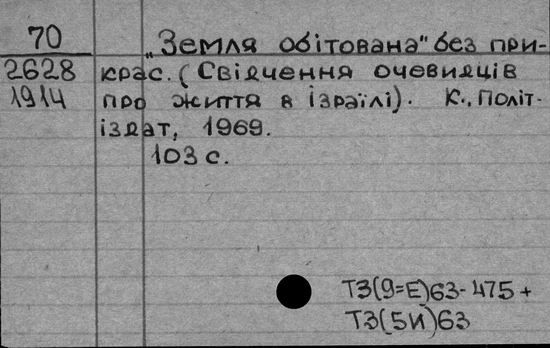 70
2628
1914
„Земля обітована" без при-
крас. (Свідчення очевидців
про життя в ізраїлі). К., Політ-
іздат, 1969.
103 с.
Т3(9=Е)63-475 +
Т3(5И)63